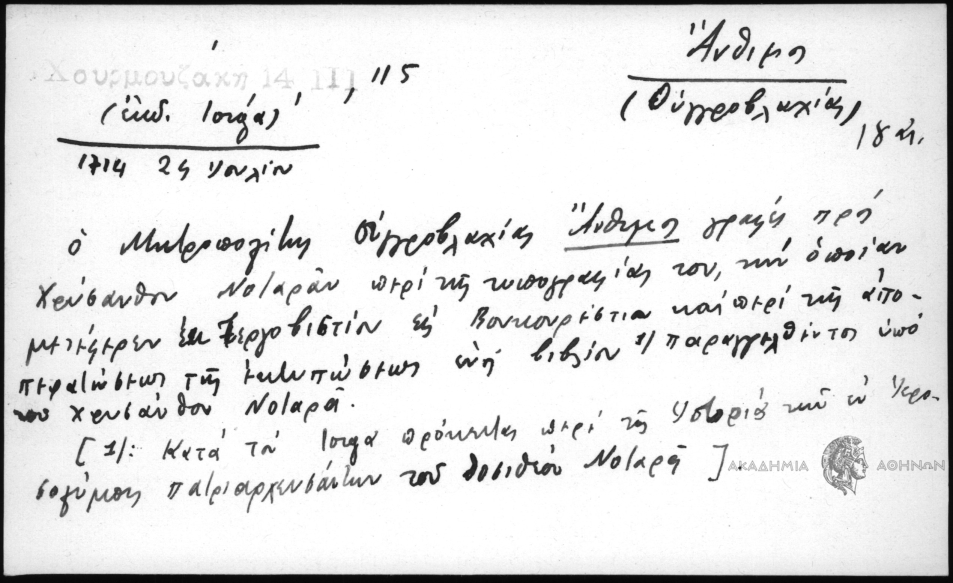 Χουρμουζάκη 14 III, 115
(ἐκδ. Ἰόργα)
1714 24 Ἰουλίου
Ἄνθιμος
(Οὐγγροβλαχίας)
18 αἰ.
ὁ Μητροπολίτης Οὐγγροβλαχίας Ἄνθιμος γράφει πρὸς
Χρύσανθον Νοταρᾶν περὶ τῆς τυπογραφίας του, τὴν ὁποίαν
μετέφερεν ἐκ Τεργοβιστίου εἰς Βουκουρέστιον καὶ περὶ τῆς ἀπο-
περατώσεως τῆς ἐκτυπώσεως ἑνὸς βιβλίου 1/ παραγγελθέντος ὑπὸ
του Χρυσάνθου Νοταρᾶ.
[1/: Κατὰ τὸν Ἰόργα πρόκειται περὶ τῆς Ἱστορίας τῶν ἐν Ἱερο-
σολύμοις πατριαρχευσάντων τοῦ Δοσιθέου Νοταρᾶ].
ΑΚΑΔΗΜΙΑ ΑΘΗΝΩΝ